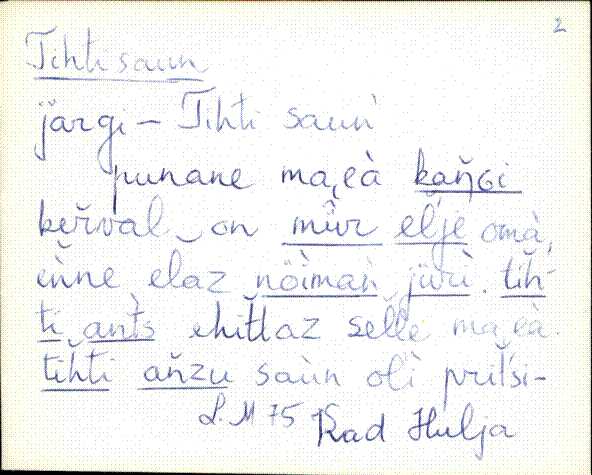 2
Tihti saun
järgi – Tihti saun
punane maea kaŋGi
kerval on mũr elje oma,
enne elaz nöiman jüri. tih-
ti ants ehitlaz selle maea.
tihti anzu saun oli pritsi-
L. M 75 Kad Hulja